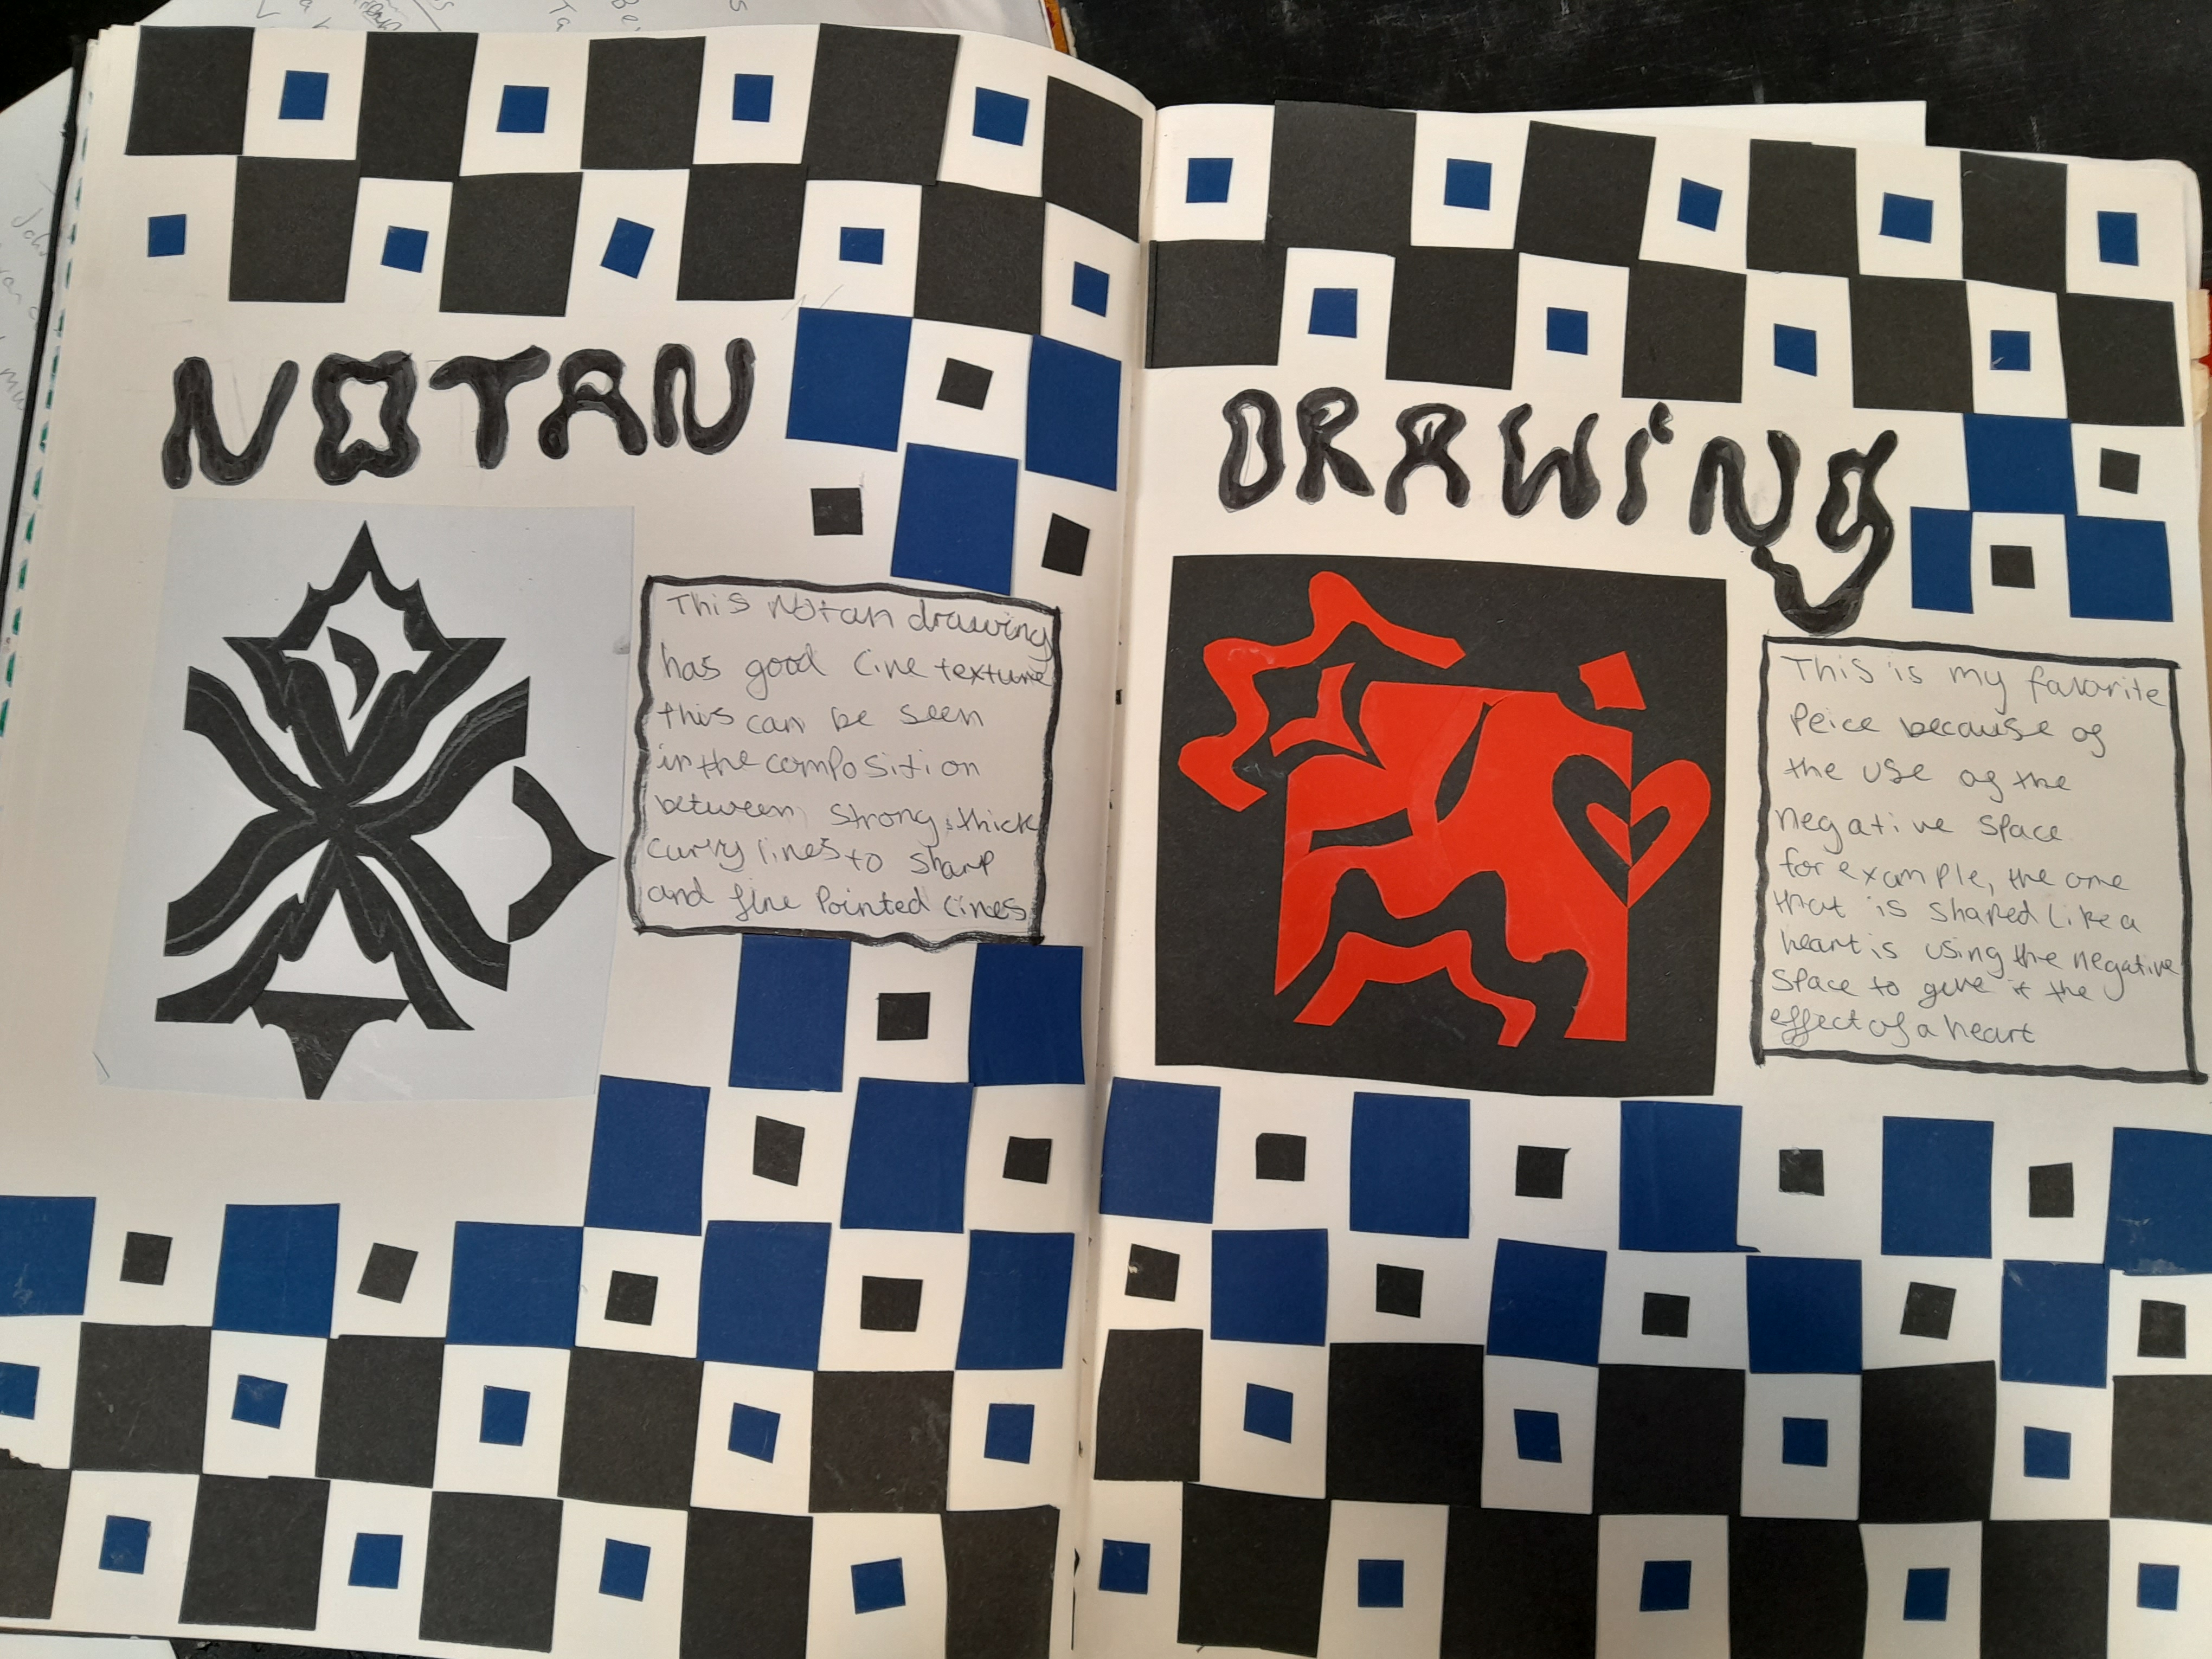 NOTAN
This Notan drawing
has good line texture
this can be seen
in the composition
between strong, thick
curvy lines to sharp
and fine pointed lines
DRAWiNg
This is my favorite
Peice because of
the use of the
negative space
for example, the one
that is shaped like a
heart is using the negative
space to give it the
effect of a heart